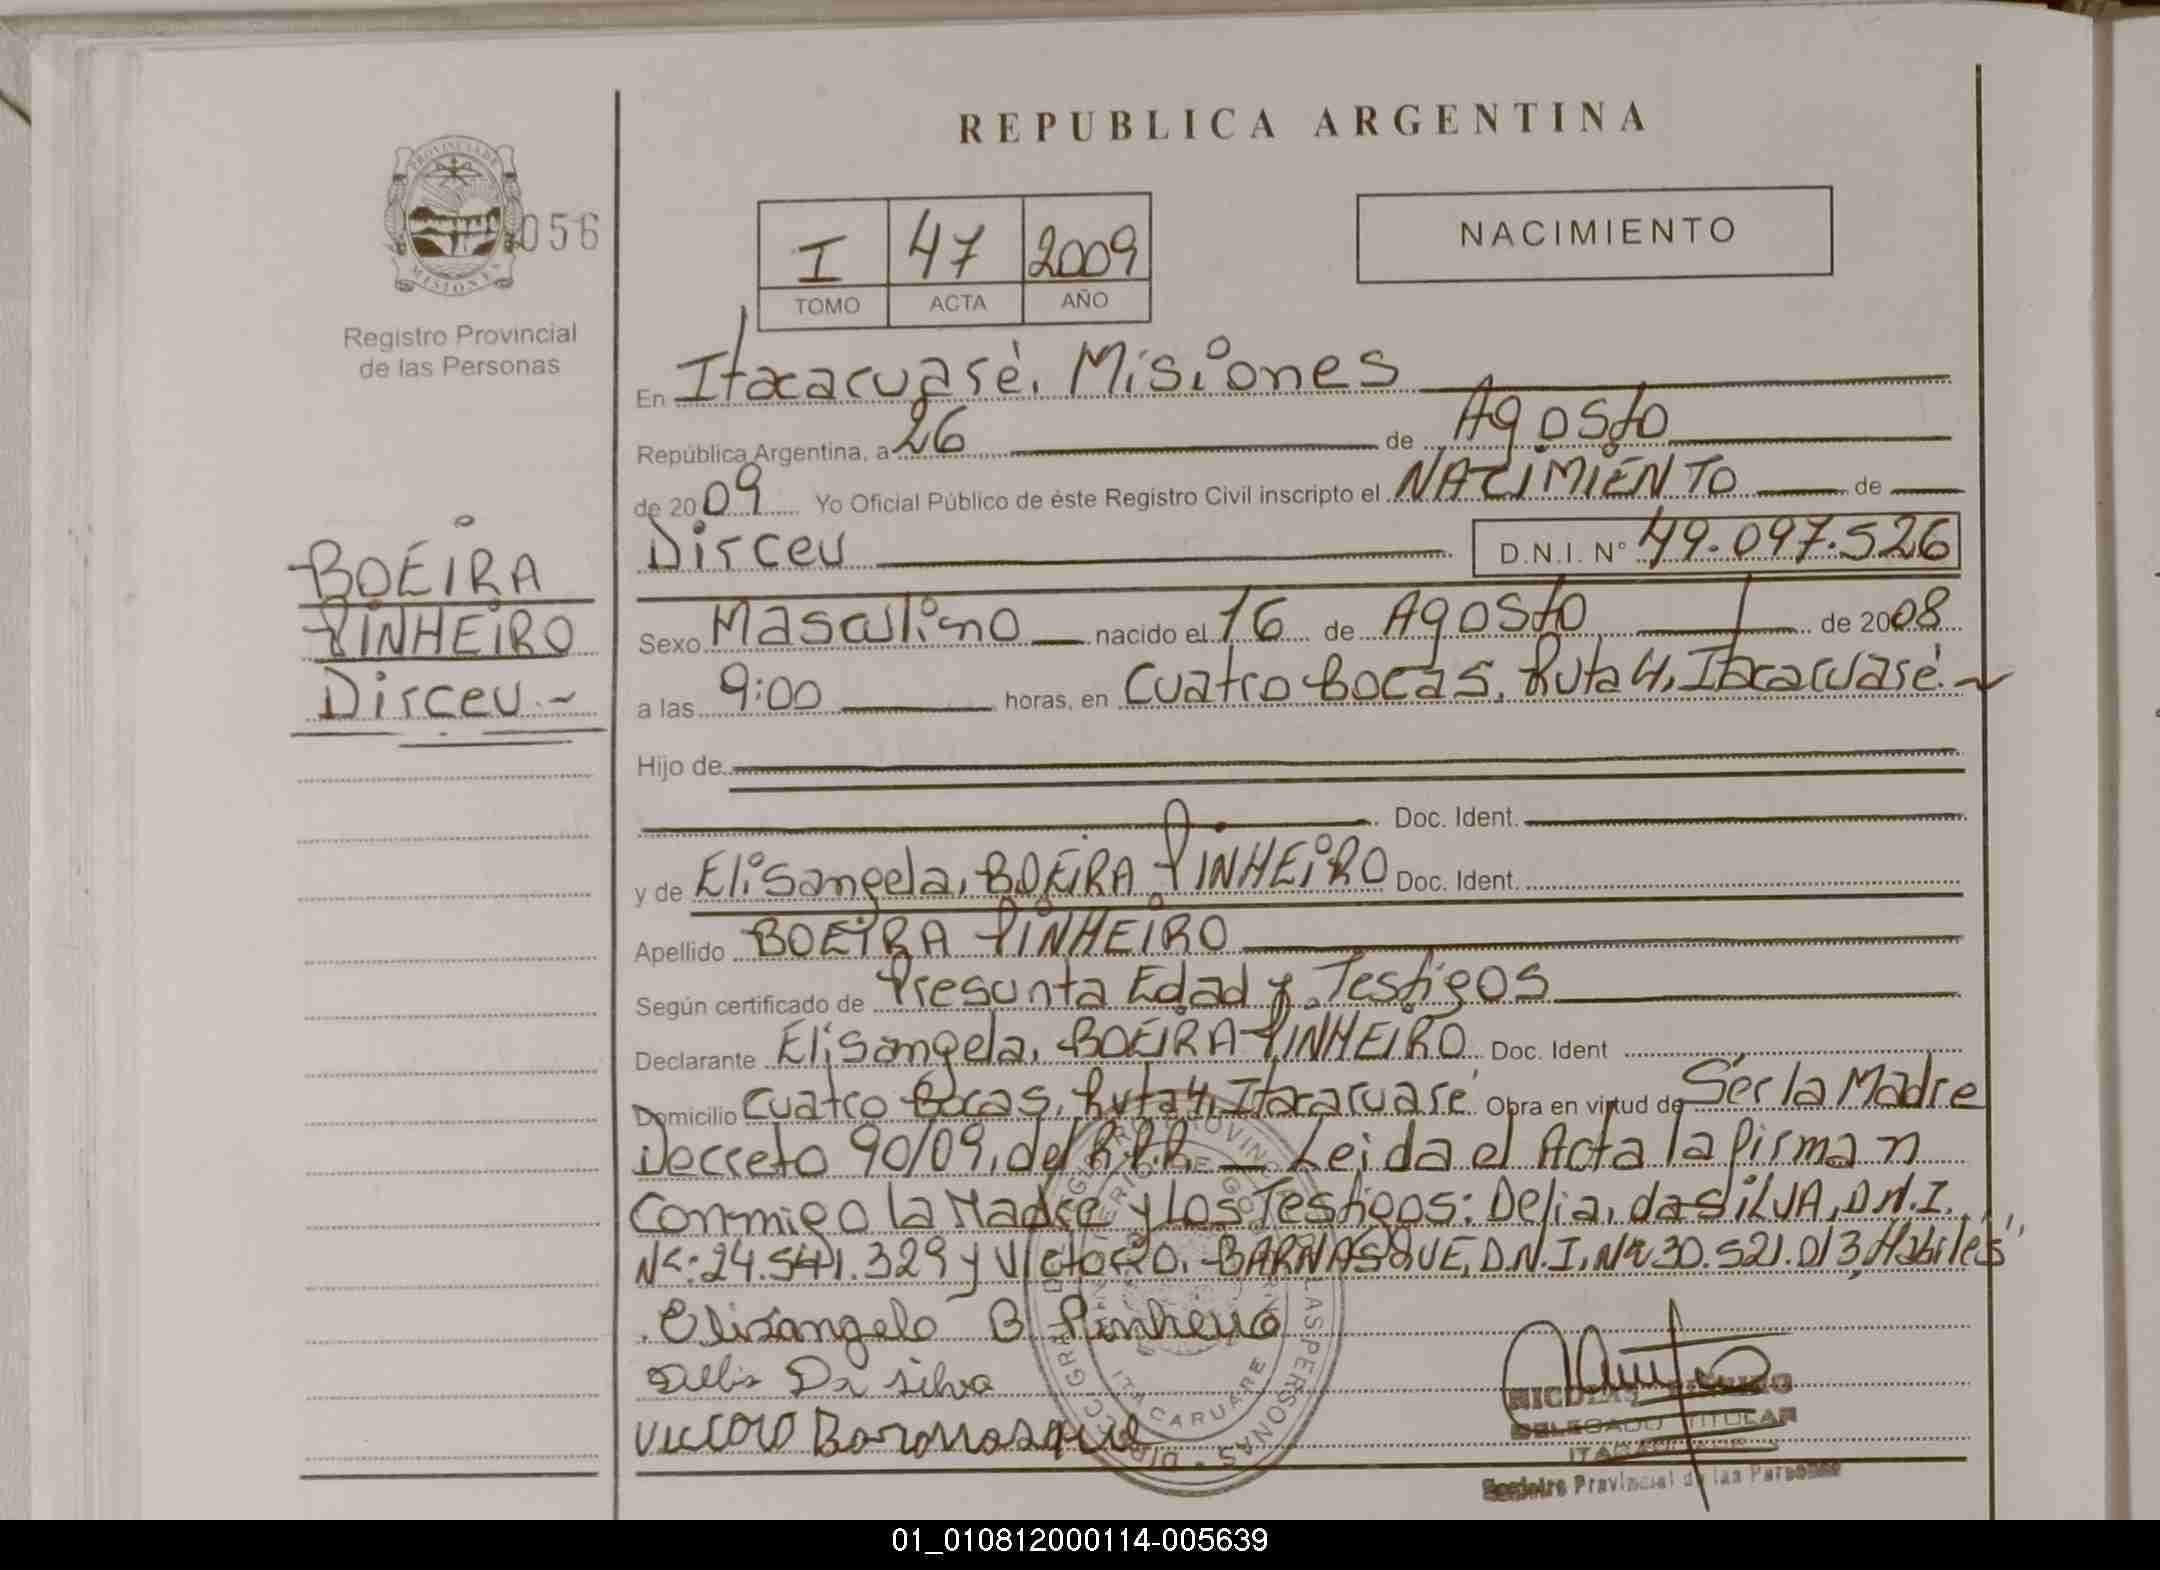 REPUBLICA ARGENTINA
PROVINCIA DE
MISIONES
056
Registro Provincial
de las Personas
I 47 2009
TOMO ACTA AÑO
NACIMIENTO
En Itacaruaré, Misiones
República Argentina, a 26 de Agosto
de 2009 Yo Oficial Público de éste Registro Civil inscripto el NACIMIENTO de
Dirceu D.N.I. N° 49.097.526
BOEIRA
PINHEIRO
Dirceu.-
Sexo Masculino nacido el 16 de Agosto de 2008
a las 9:00 horas, en Cuatro Bocas, Ruta 4, Itacaruaré.
Hijo de
Doc. Ident.
y de Elisangela, BOEIRA PINHEIRO Doc. Ident.
Apellido BOEIRA PINHEIRO
Según certificado de Presunta Edad y Testigos
Declarante Elisangela, BOEIRA PINHEIRO Doc. Ident
Domicilio Cuatro Bocas, Ruta 4, Itacaruaré Obra en virtud de Ser la Madre
Decreto 90/09, del R.P.P. — Leida el Acta la firman
Conmigo la Madre y Los Testigos: Delia, da SILVA, D.N.I.
N°: 24.541.329 y Victorio. BARNASQUE, D.N.I, N° 30.521.013, Habiles
Elisangela B Pinheiro
Delia Da silva
ITACARUARE
DELEGADO TITULAR
Registro Provincial de las Personas
01_010812000114-005639